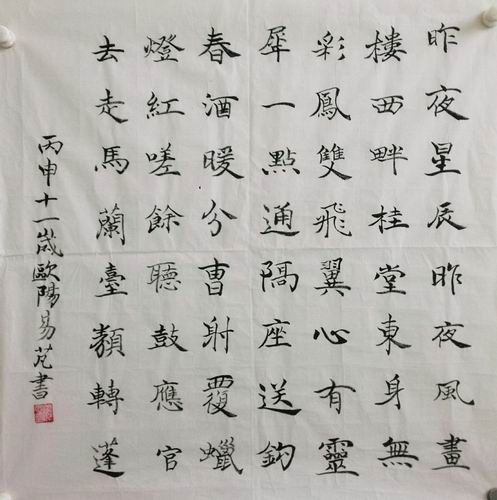 昨夜星辰昨夜風畫
樓西畔桂堂東身無
彩鳳雙飛翼心有靈
犀一點通隔座送鈎
春酒暖分曹射覆蠟
燈紅嗟餘聽鼓應官
去走馬蘭臺類轉蓬
丙申十一歲歐陽易芃書